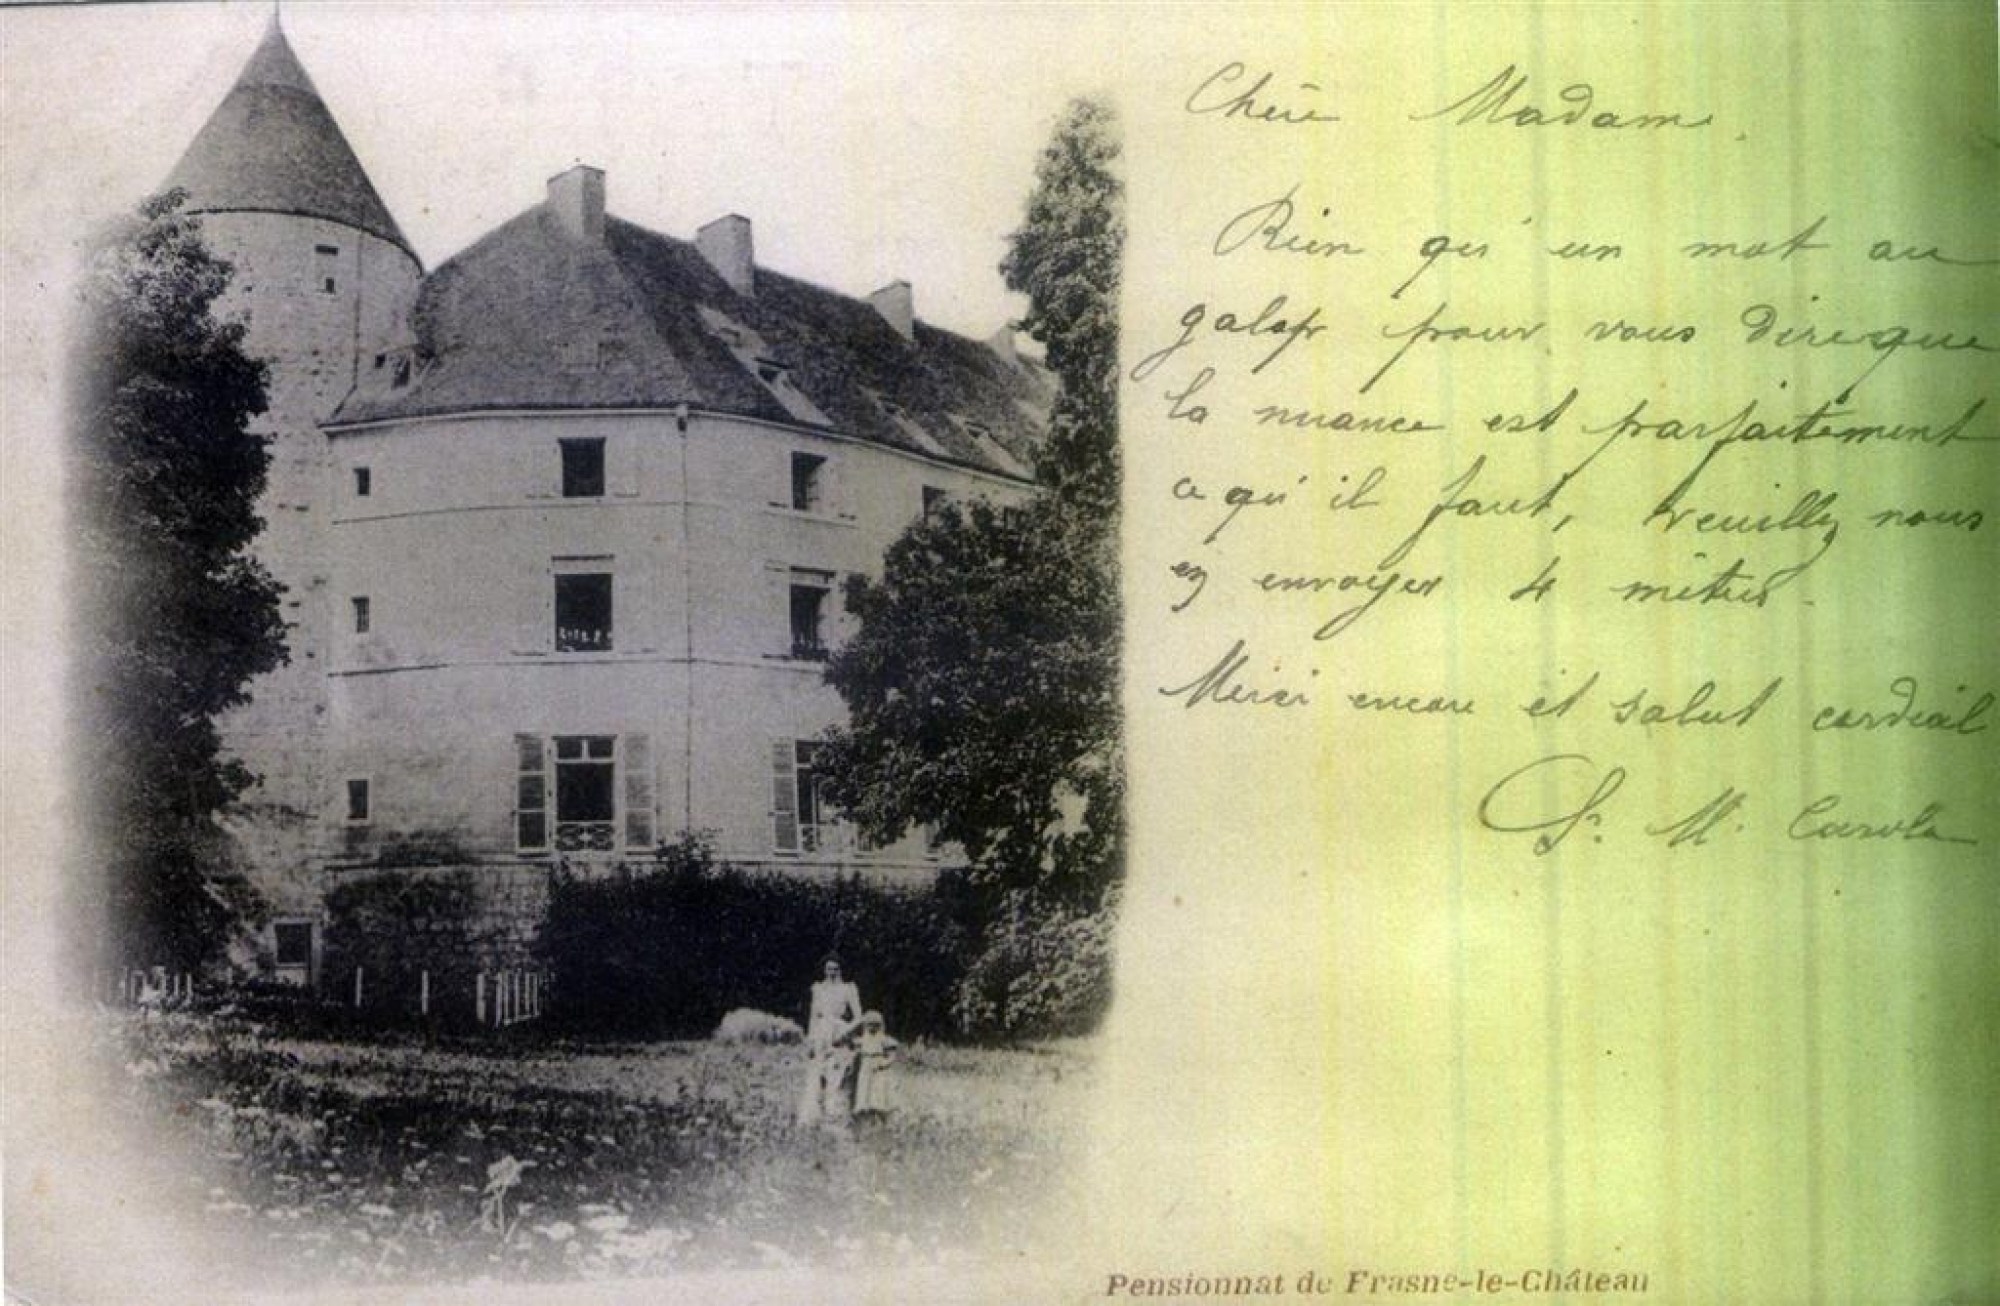 Chère Madame,
Rien qu'un mot au
galop pour vous dire que
la nuance est parfaitement
ce qu'il faut, veuillez nous
en envoyer 4 mètres.
Merci encore et salut cordial
Sr. M. Carola
Pensionnat de Frasne-le-Château